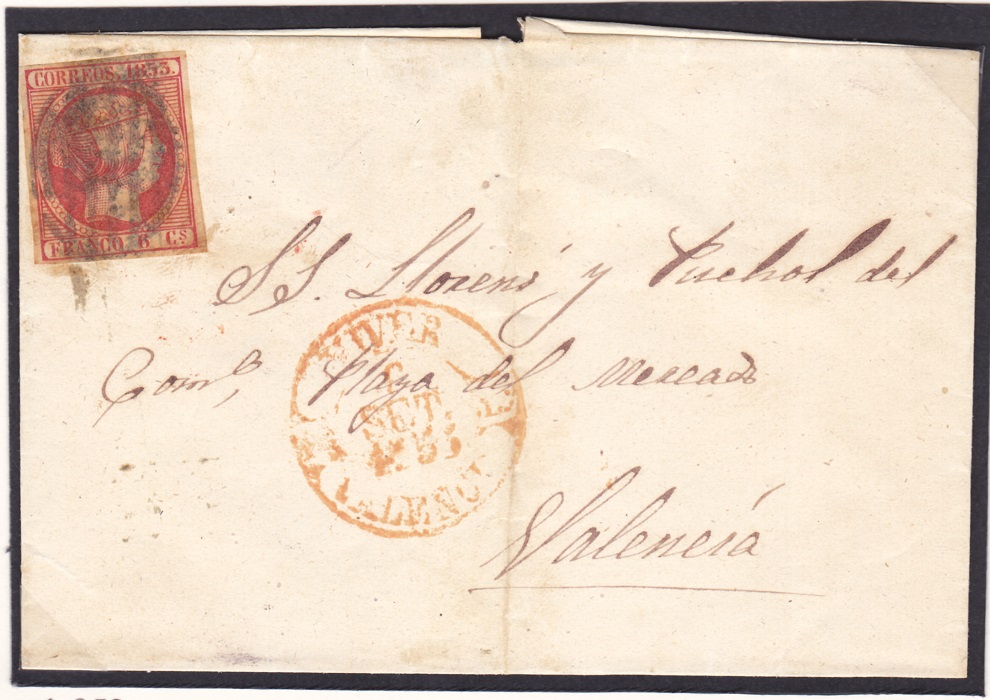 CORREOS 1853.
FRANCO 6 Cs
SS. Llorens y Puchol del
Comº, Plaza del Mercado
Valencia
VIVER
SET.
VALENCIA